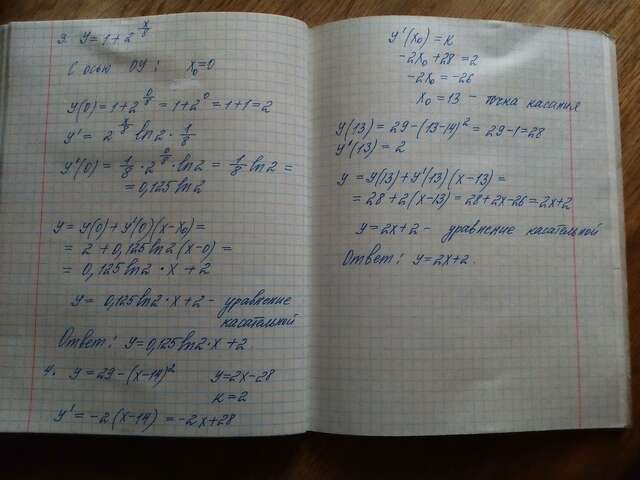 3. y=1+2^(x/8)
С осью OY: x₀=0
y(0)=1+2^(0/8)=1+2^0=1+1=2
y'= 2^(x/8) ln2 · 1/8
y'(0)= 1/8 · 2^(0/8) · ln2 = 1/8 ln2 =
= 0,125 ln2
y = y(0)+y'(0)(x-x₀)=
= 2 + 0,125 ln2 (x-0) =
= 0,125 ln2 · x + 2
y = 0,125 ln2 · x + 2 - уравнение
касательной
Ответ: y=0,125 ln2 · x + 2
4. y=29-(x-14)² y=2x-28
k=2
y' = -2(x-14) = -2x+28
y'(x₀) = k
-2x₀ + 28 = 2
-2x₀ = -26
x₀ = 13 - точка касания
y(13) = 29-(13-14)² = 29-1=28
y'(13) = 2
y = y(13)+y'(13)(x-13)=
= 28+2(x-13)=28+2x-26=2x+2
y=2x+2 - уравнение касательной
Ответ: y=2x+2.